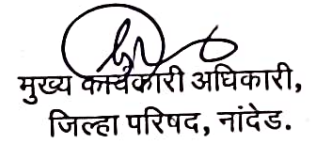 मुख्य कार्यकारी अधिकारी,
जिल्हा परिषद, नांदेड.